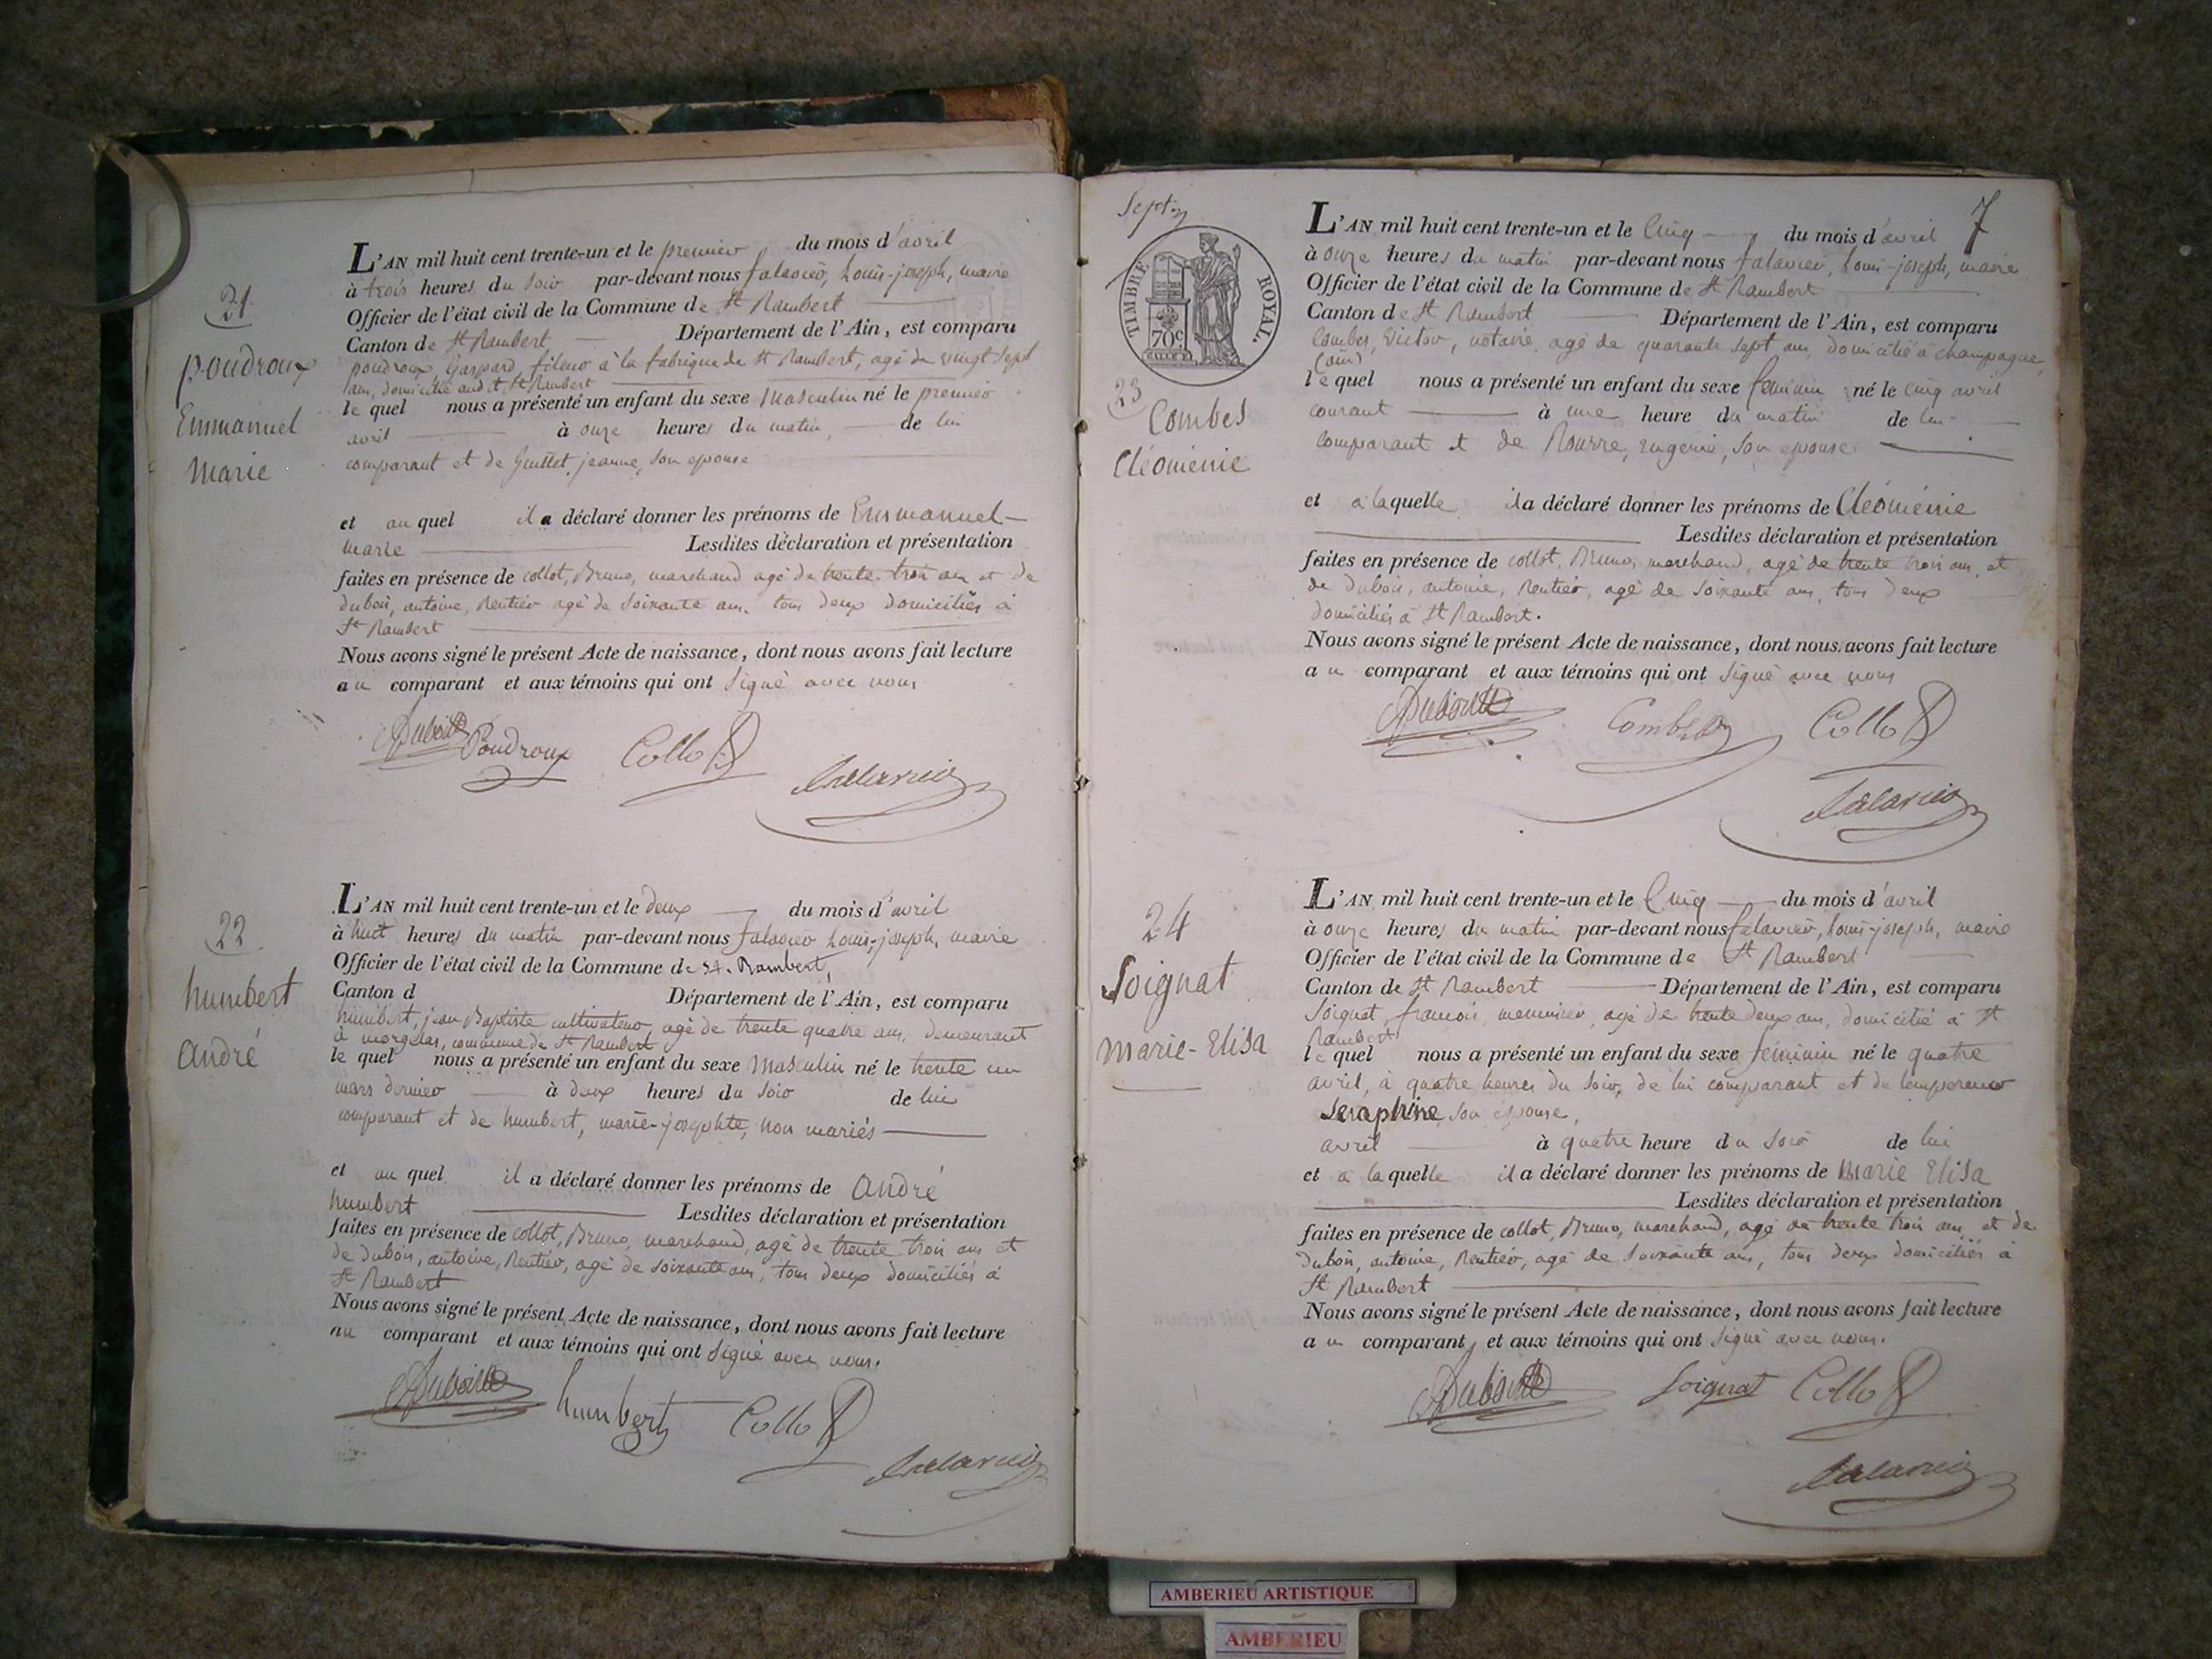 21
poudroux
Emmanuel
Marie
L'AN mil huit cent trente-un et le premier du mois d'avril
à trois heures du soir par-devant nous falavier, Louis-joseph, maire
Officier de l'état civil de la Commune de St Rambert
Canton de St Rambert Département de l'Ain, est comparu
poudroux, Gaspard, fileur à la fabrique de St Rambert, agé de vingt sept
ans, domicilié aud. St Rambert
le quel nous a présenté un enfant du sexe Masculin né le premier
avril à onze heures du matin, de lui
comparant et de Guillet, jeanne, son epouse
et au quel il a déclaré donner les prénoms de Emmanuel-
marie Lesdites déclaration et présentation
faites en présence de collot, Bruno, marchand agé de trente-trois ans et de
dubois, antoine, Rentier agé de soixante ans, tous deux domiciliés à
St Rambert
Nous avons signé le présent Acte de naissance, dont nous avons fait lecture
au comparant et aux témoins qui ont signé avec nous
Dubois Poudroux Collot
falavier
22
humbert
André
L'AN mil huit cent trente-un et le deux du mois d'avril
à huit heures du matin par-devant nous falavier Louis-joseph, maire
Officier de l'état civil de la Commune de St. Rambert,
Canton d Département de l'Ain, est comparu
humbert, jean Baptiste cultivateur, agé de trente quatre ans, demeurant
à morgelas, commune de St Rambert
le quel nous a présenté un enfant du sexe Masculin né le trente un
mars dernier à deux heures du soir de lui
comparant et de humbert, marie-josephte, non mariés
et au quel il a déclaré donner les prénoms de André
humbert Lesdites déclaration et présentation
faites en présence de collot, Bruno, marchand, agé de trente trois ans et
de dubois, antoine, Rentier, agé de soixante ans, tous deux domiciliés à
St Rambert
Nous avons signé le présent Acte de naissance, dont nous avons fait lecture
au comparant et aux témoins qui ont signé avec nous.
Dubois humbert Collot
falavier
Sept
7
TIMBRE ROYAL.
70c
23
Combes
Cléoménie
L'AN mil huit cent trente-un et le Cinq du mois d'avril
à onze heures du matin par-devant nous falavier, Louis-joseph, maire
Officier de l'état civil de la Commune de St Rambert
Canton de St Rambert Département de l'Ain, est comparu
Combes, Victor, notaire, agé de quarante sept ans, domicilié à champagne,
(ain)
le quel nous a présenté un enfant du sexe feminin né le cinq avril
courant à une heure du matin de lui
comparant et de Rourre, Eugenie, son epouse
et à laquelle il a déclaré donner les prénoms de Cléoménie
Lesdites déclaration et présentation
faites en présence de collot, Bruno, marchand, agé de trente trois ans, et
de dubois, antoine, Rentier, agé de soixante ans, tous deux
domiciliés à St Rambert.
Nous avons signé le présent Acte de naissance, dont nous avons fait lecture
au comparant et aux témoins qui ont signé avec nous
Dubois Combes Collot
falavier
24
Soignat
marie-Elisa
L'AN mil huit cent trente-un et le Cinq du mois d'avril
à onze heures du matin par-devant nous falavier, Louis-joseph, maire
Officier de l'état civil de la Commune de St Rambert
Canton de St Rambert Département de l'Ain, est comparu
Soignat, francois, menuisier, agé de trente deux ans, domicilié à St
Rambert
le quel nous a présenté un enfant du sexe féminin né le quatre
avril, à quatre heures du soir, de lui comparant et de lempereur
Seraphine son epouse,
avril à quatre heure du soir de lui
et à la quelle il a déclaré donner les prénoms de Marie Elisa
Lesdites déclaration et présentation
faites en présence de collot, Bruno, marchand, agé de trente trois ans, et de
dubois, antoine, Rentier, agé de soixante ans, tous deux domiciliés à
St Rambert
Nous avons signé le présent Acte de naissance, dont nous avons fait lecture
au comparant, et aux témoins qui ont signé avec nous.
Dubois Soignat Collot
falavier
AMBERIEU ARTISTIQUE
AMBERIEU